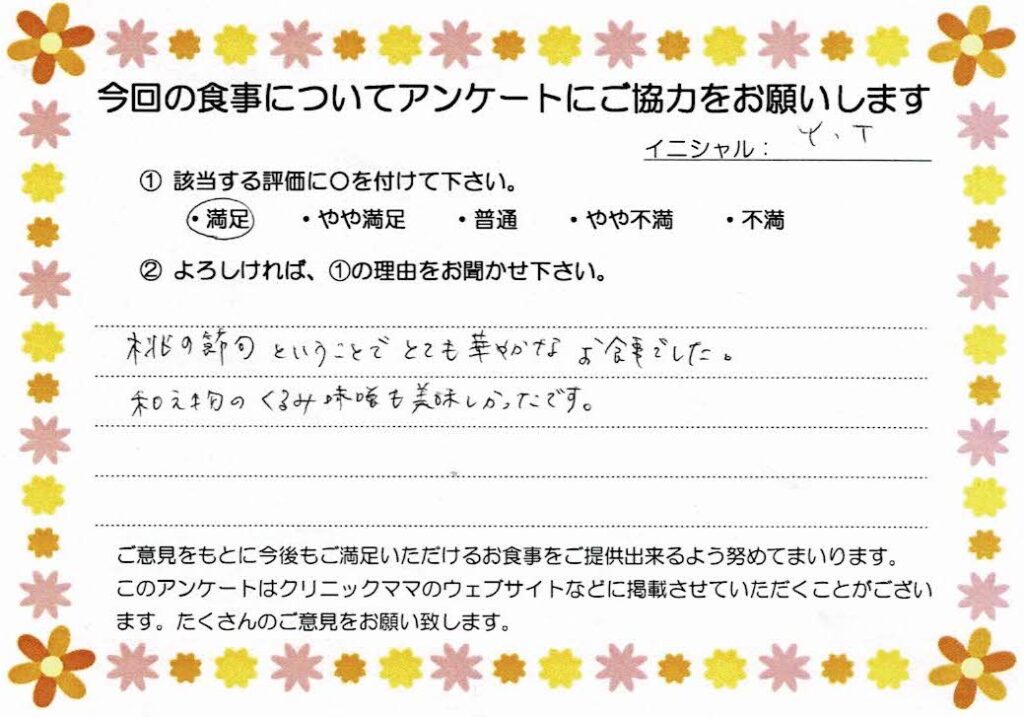 今回の食事についてアンケートにご協力をお願いします
イニシャル： Y.T
① 該当する評価に〇を付けて下さい。
・満足 ・やや満足 ・普通 ・やや不満 ・不満
② よろしければ、①の理由をお聞かせ下さい。
桃の節句ということでとても華やかなお食事でした。
和え物のくるみ味噌も美味しかったです。
ご意見をもとに今後もご満足いただけるお食事をご提供出来るよう努めてまいります。
このアンケートはクリニックママのウェブサイトなどに掲載させていただくことがござい
ます。たくさんのご意見をお願い致します。